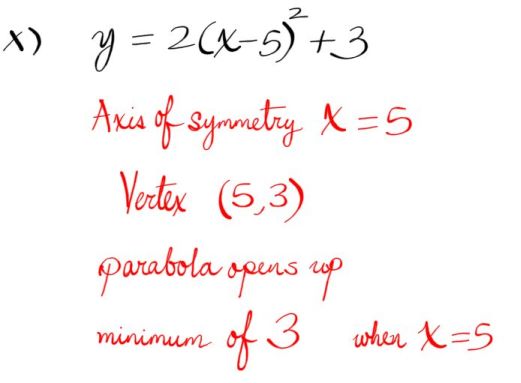 x) y = 2(x-5)² + 3
Axis of symmetry x = 5
Vertex (5,3)
parabola opens up
minimum of 3 when x = 5